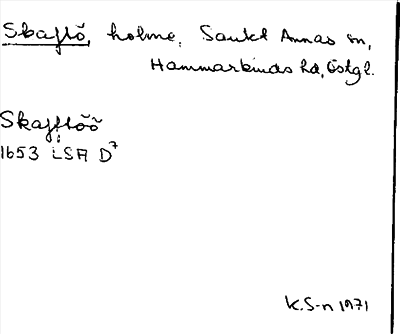 Skaftö, holme, Sankt Annas sn,
Hammarkinds hd, Östgl.
Skafftöö
1653 LSA D7
K.S-n 1971